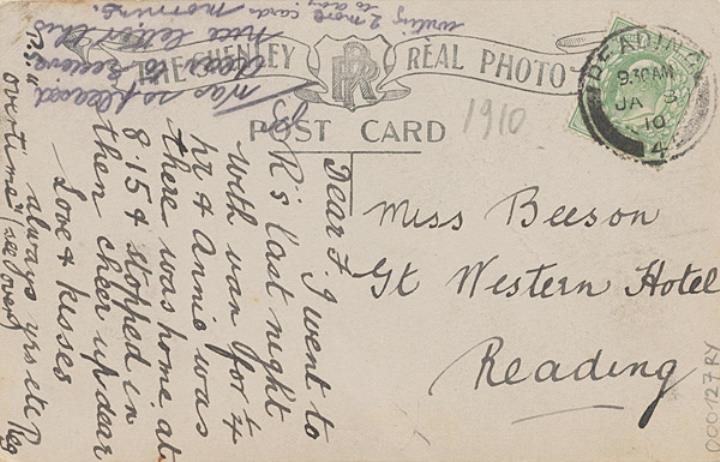 THE CHENLEY REAL PHOTO
RP
POST CARD
1910
READING
9.30AM
JA 3
10
4
Miss Beeson
Gt Western Hotel
Reading
Dear F. I went to
R's last night
with van for ¼
hr & Annie was
there was home at
8.15 & stopped in
then cheer up dear
Love & kisses
always yrs etc Reg
P.S.
overtime" (see over)
was so pleased
dear to receive
nice letter this
morning.
writing 2 more cards
to day
000127RY